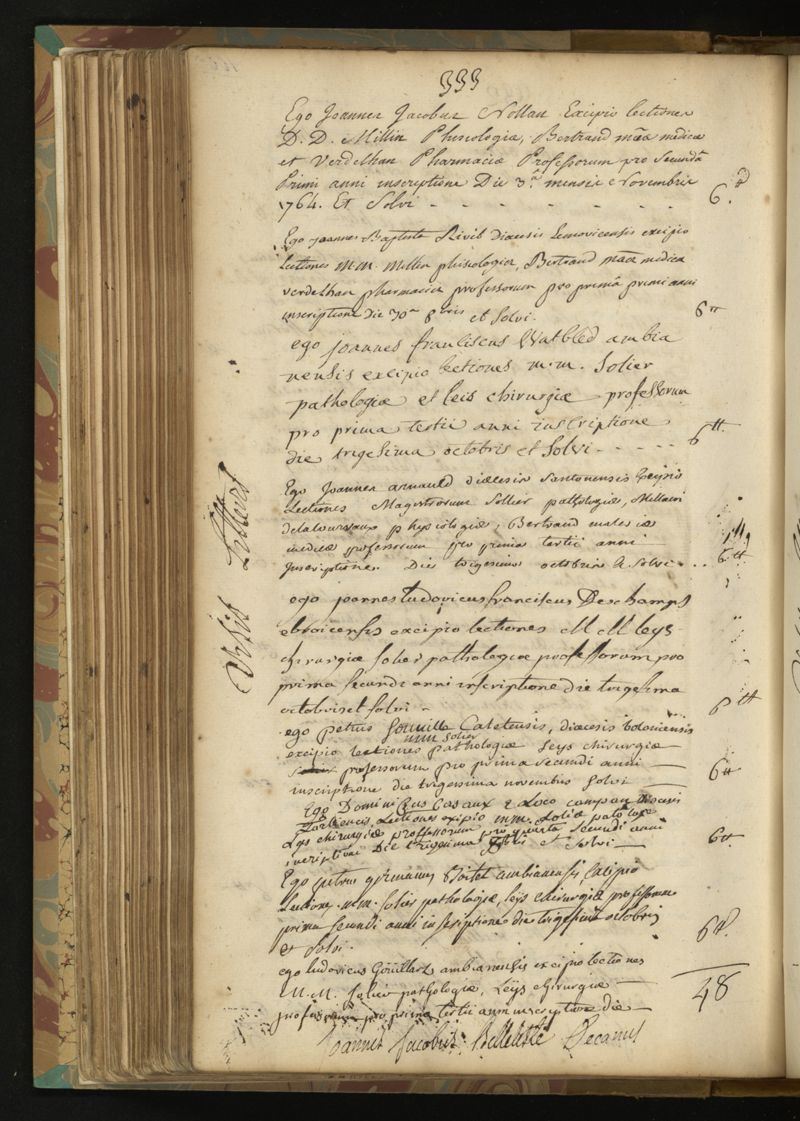 333
Ego Joannes Jacobus Nollan Excipio lectiones
D. D. Millin Phisiologiæ, Bertrand mãa medicæ
et Verdelhan Pharmaciæ Professorum pro Secundâ
Primi anni inscriptione Die 3.ª mensis Novembris
1764. Et Solvi - - - - - - - 6.tt
Ego joannes Baptista Rivib diæcesis Lemovicensis excipio
Lectiones MM. Millin phisiologiæ, Bertrand mãa medicæ
verdelhan pharmaciæ professorum pro primâ primi anni
inscriptione die 30a 8bris et solvi. 6tt
ego joannes franciscus Watbled ambia
nensis excipio lectiones m.m. Solier
pathologiæ et leis chirurgiæ professorum
pro prima tertii anni inscriptione
die trigesima octobris et Solvi - - - - - 6tt
Ego Joannes arnauld diæcesis Santonensis
Lectiones Magistrorum Sollier pathologiæ,
physiologiæ, Bertrand materiæ
medicæ professorum pro prima tertii anni
Inscriptione Die trigesima octobris & solvi - .. 6tt
ego joannes Ludovicus franciscus Deschamps
ebroicensis excipio lectiones M M leys
chirurgiæ solier pathologiæ professorum pro
prima secundi anni inscriptione die trigesima
octobris et solvi - 6tt
ego petrus Souville Caletensis, diæcesis boloniensis
mm solier
excipio lectiones pathologiæ Leys chirurgiæ
professorum pro prima secundi anni
inscriptione die trigessima novembris solvi 6tt
Ego Dominicus Casaux e Loco campan diæcesis
Tarbiensis, Lectiones exipio mm. Soliæ patologiæ
Lys chirurgiæ proffessorum pro quarta secundi anni
inscriptione Die trigesima 8bris et Solvi 6tt
Ego petrus germanus ambianensis, Excipio
Lectiones m.m. solier pathologiæ, leys chirurgiæ professorum
prima secundi anni inscriptione die trigesima octobris
et solvi. 6tt
ego ludovicus ambianensis excipio lectiones
M.M. Solier pathologiæ, Leys chirurgiæ
professorum pro prima tertii anni inscriptione die 48
Joannes Jacobus Belleteste Decanus